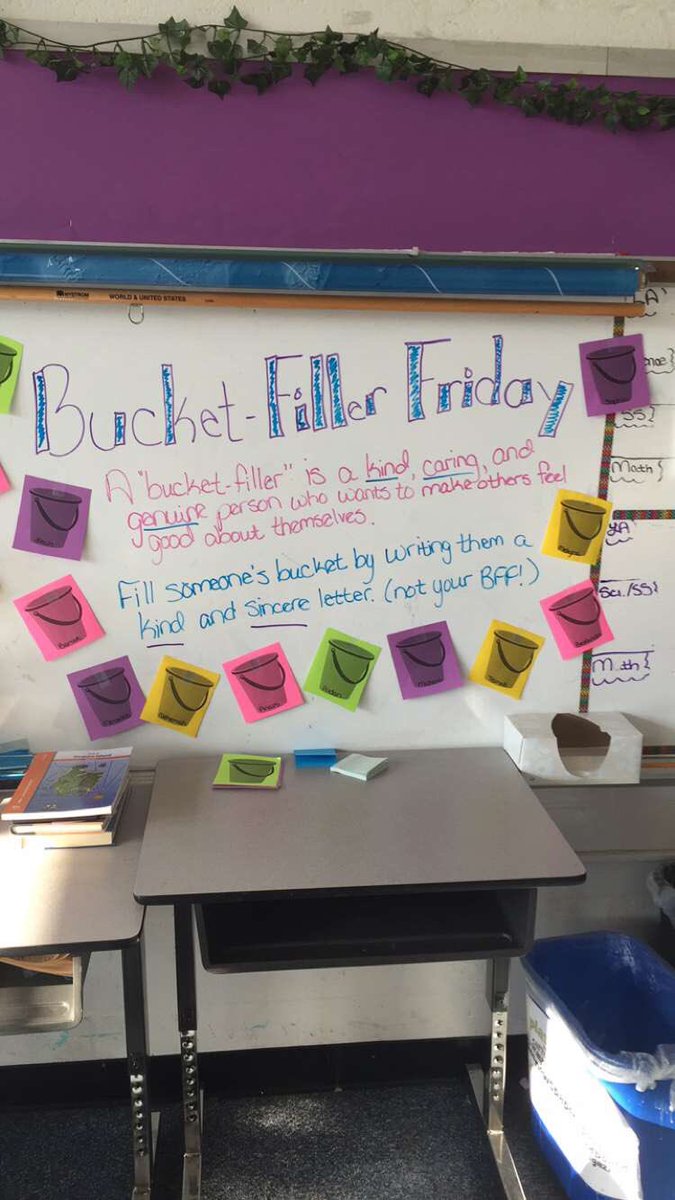 NYSTROM WORLD & UNITED STATES
Bucket-Filler Friday
A "bucket-filler" is a kind, caring, and
genuine person who wants to make others feel
good about themselves.
Fill someone's bucket by writing them a
kind and sincere letter. (not your BFF!)
SS
Math }
LA
Sci./SS}
Math}